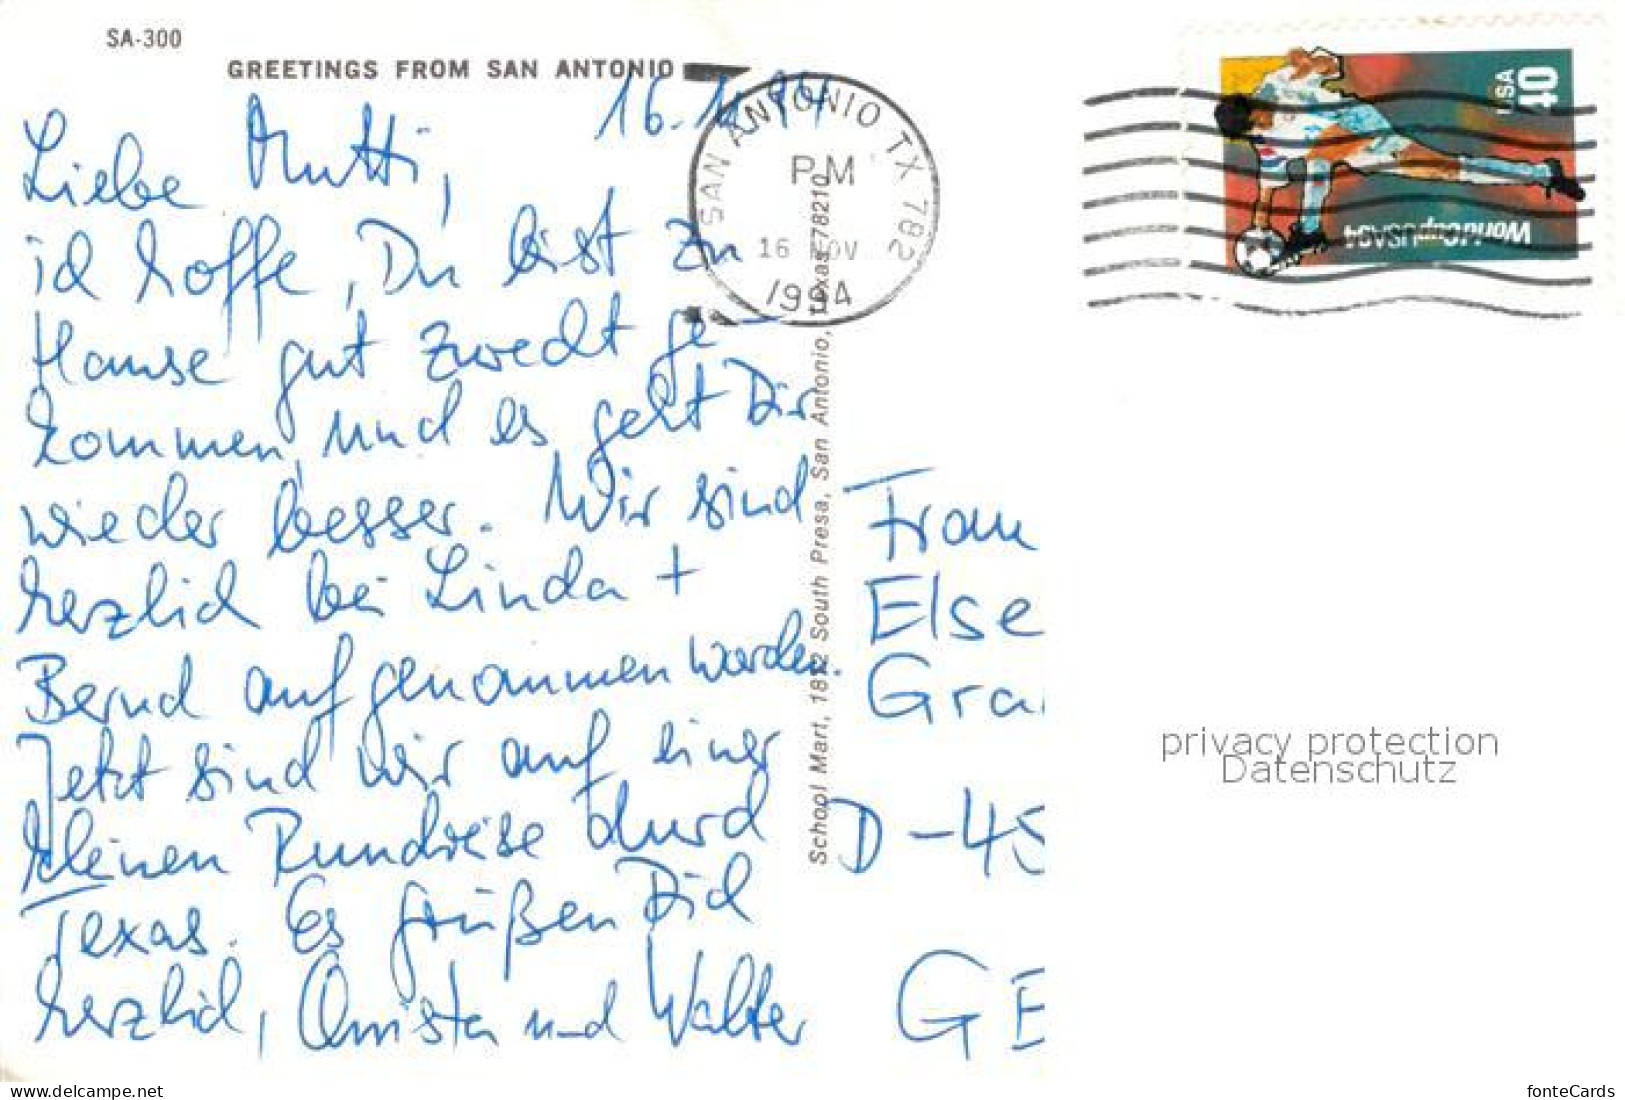 SA-300
GREETINGS FROM SAN ANTONIO
16.11.94
Liebe Mutti,
ich hoffe, Du bist zu
Hause gut zurecht ge-
kommen, und es geht Dir
wieder besser. Wir sind
herzlich bei Linda +
Bernd aufgenommen worden.
Jetzt sind wir auf einer
kleinen Rundreise durch
Texas. Es grüßen Dich
herzlich, Christa und Walter
SAN ANTONIO TX 782
PM
16 NOV
1994
School Mart, 1812 South Presa, San Antonio, Texas 78210
USA 40
WorldCupUSA94
Frau
Else
Gra
D-45
GE
privacy protection
Datenschutz
www.delcampe.net
fonteCards